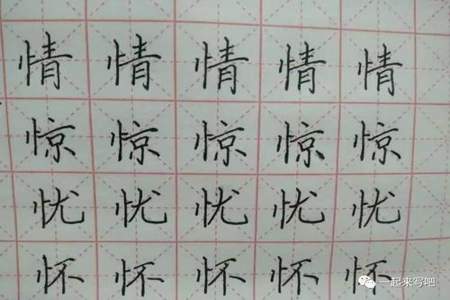 情 情 情 情 情
惊 惊 惊 惊 惊
忧 忧 忧 忧 忧
怀 怀 怀 怀 怀
一起来写吧